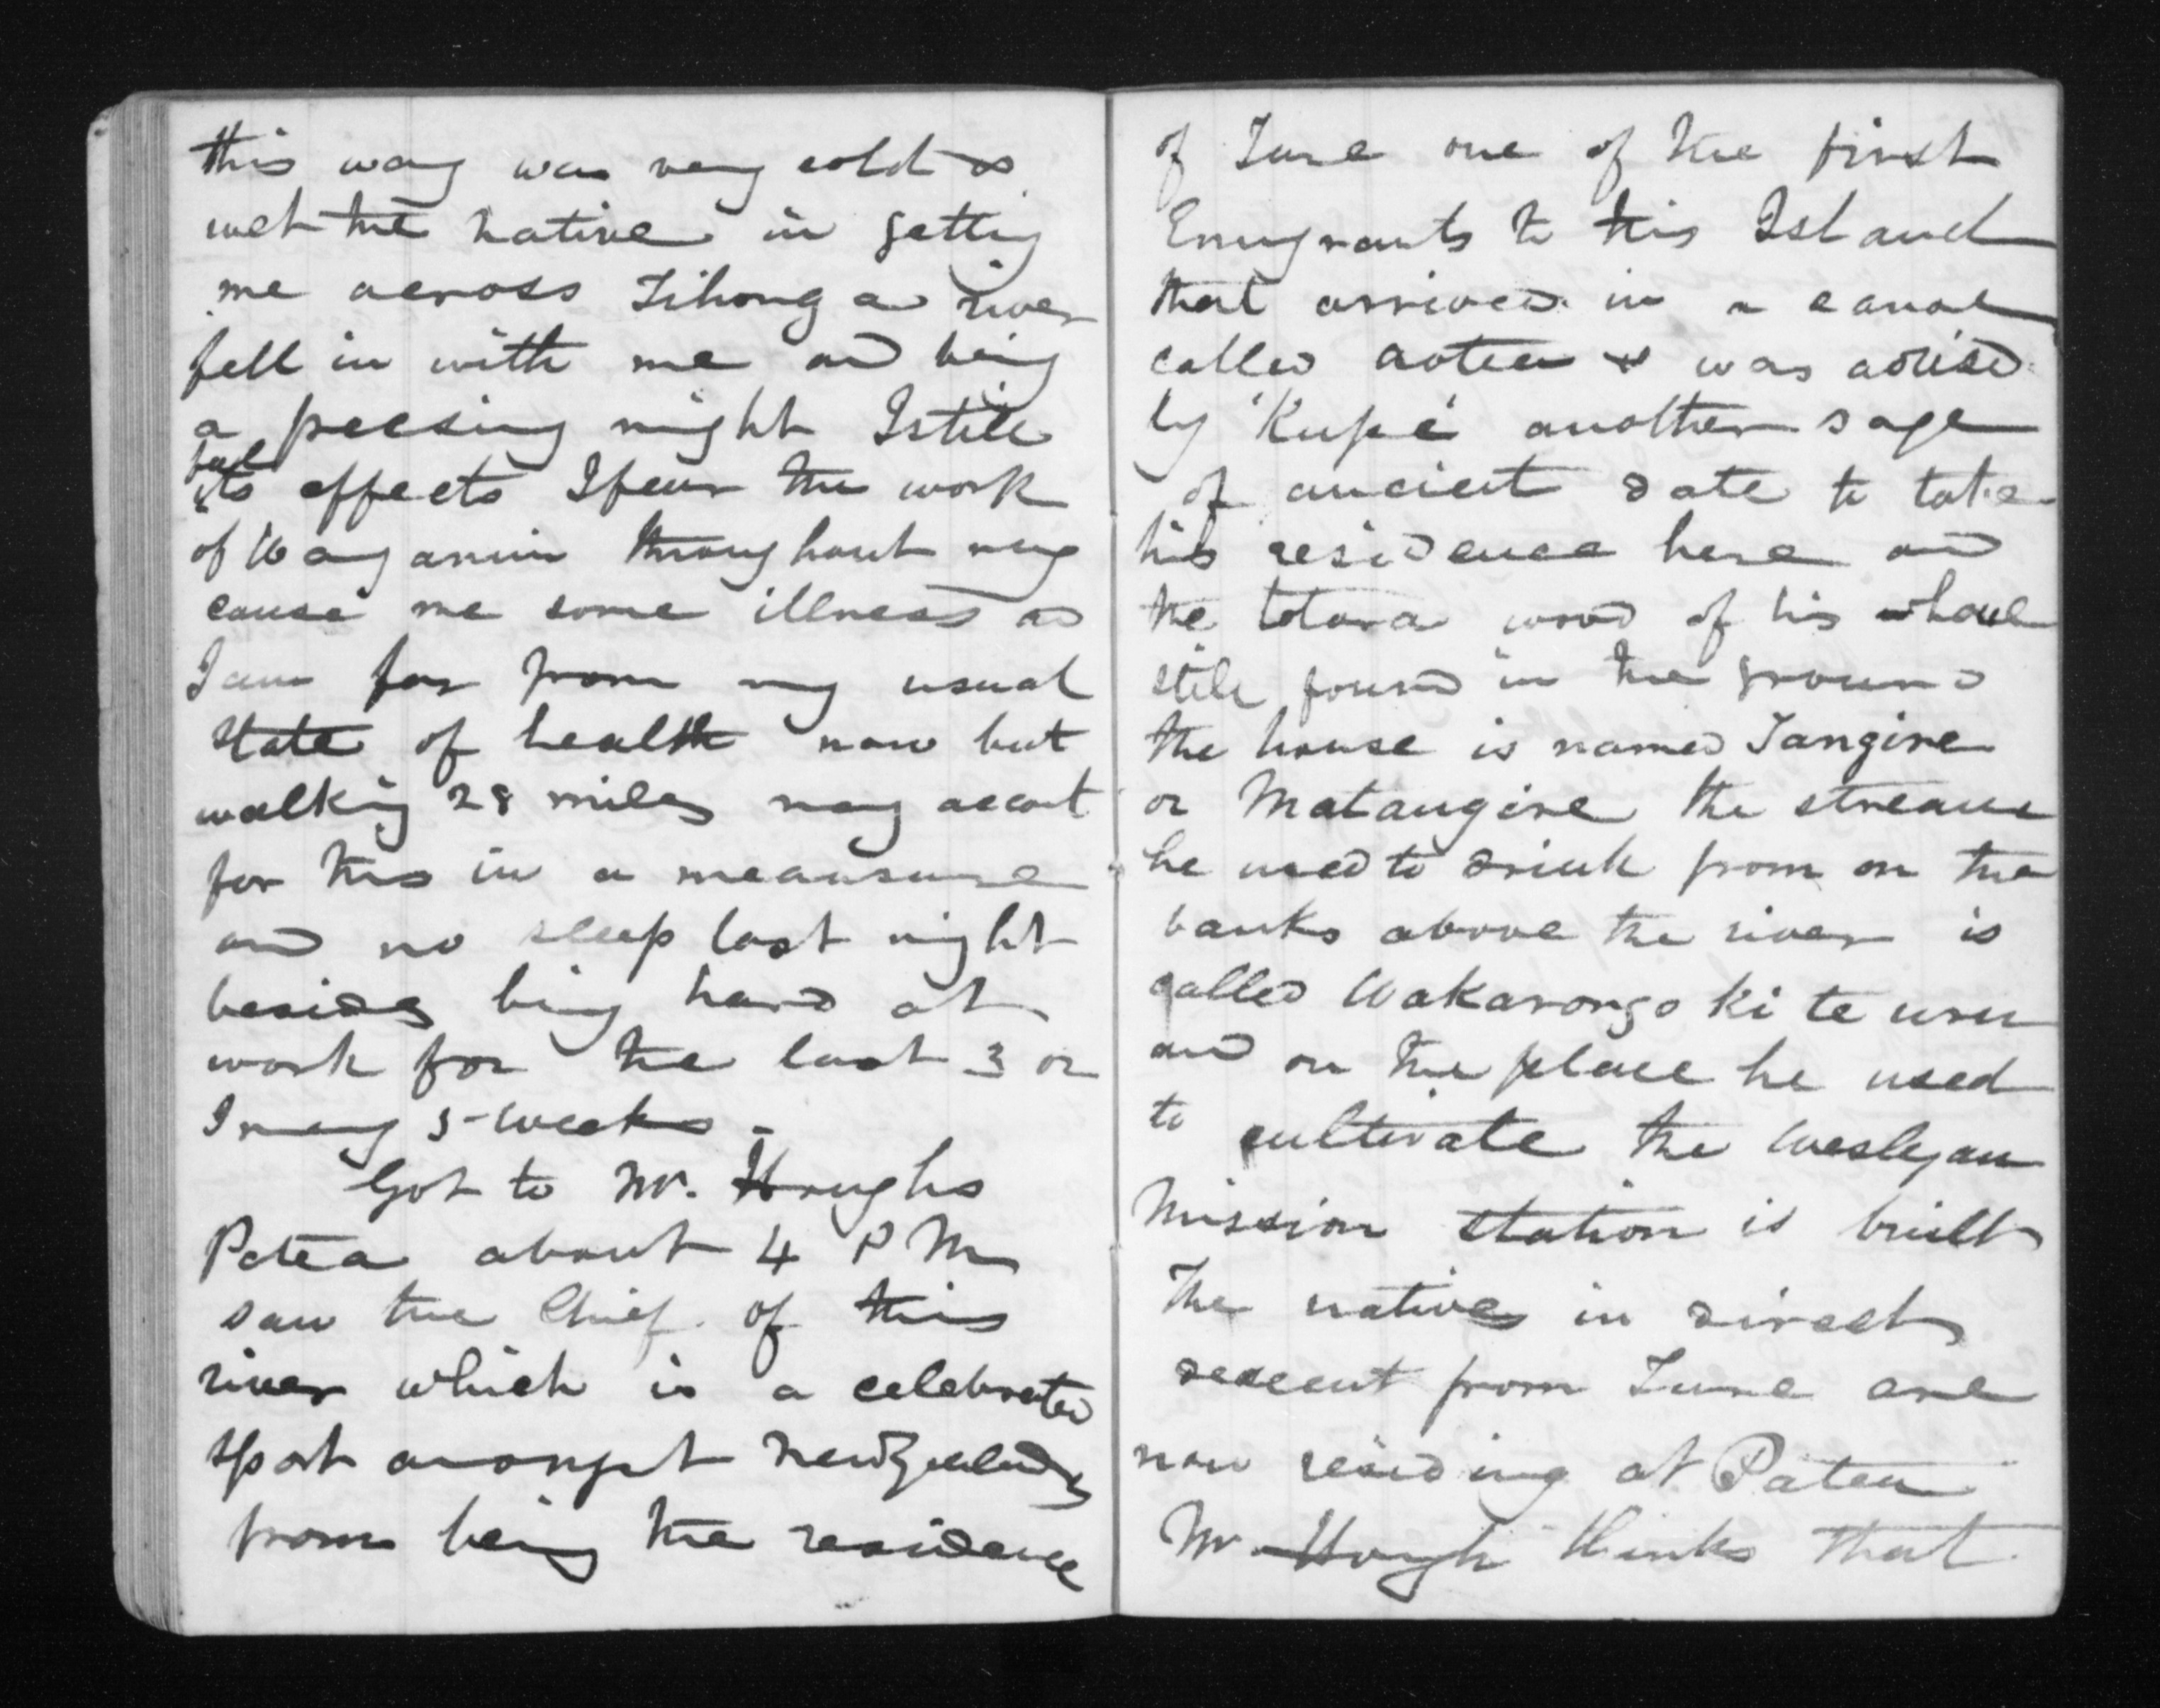 this way was very cold &
wet the native in getting
me across Tihonga river
fell in with me and being
a freesing night I still
feel
its effects I fear the work
of throughout may
cause me some illness as
I am far from my usual
state of health now but
walking 28 miles may accout
for this in a meansure
and no sleep last night
besides being hard at
work for the last 3 or
I may 5 weeks -
Got to Mr. Houghs
Patea about 4 PM
saw the Chief of this
river which is a celebrated
spot amongst New Zealanders
from being the residence
of Turie one of the first
Emugrants to this Island
that arrived in a canoe
called aotea & was advised
by 'Kupe' another sage
of ancient date to take
his residence here and
the totara wood of his whare
still found in the ground
the house is named Tangire
or Matangire the stream
he used to drink from on the
banks above the river is
called Wakarongo ki te uru
and on the place he used
to cultivate the Wesleyan
Mission station is built
The natives in direct
descent from Turie are
now residing at Patea
Mr. Hough thinks that